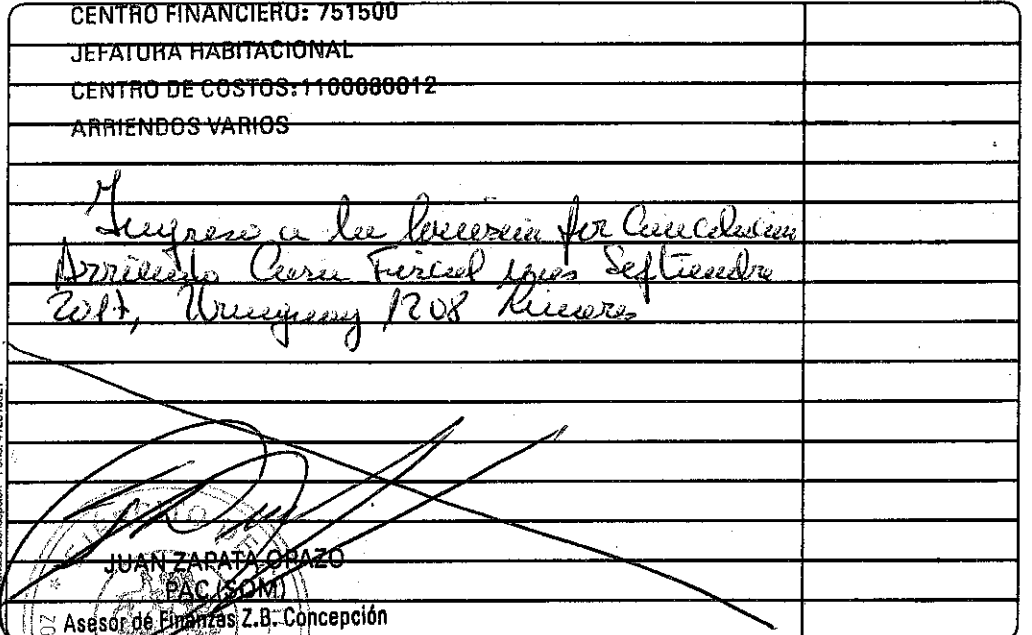 CENTRO FINANCIERO: 751500
JEFATURA HABITACIONAL
CENTRO DE COSTOS: 1100080012
ARRIENDOS VARIOS
Ingreso a la por Cancelación
Arriendo Casa Fiscal mes Septiembre
2017, Uruguay 1208
JUAN ZAPATA OPAZO
PAC (SOM)
Asesor de Finanzas Z.B. Concepción